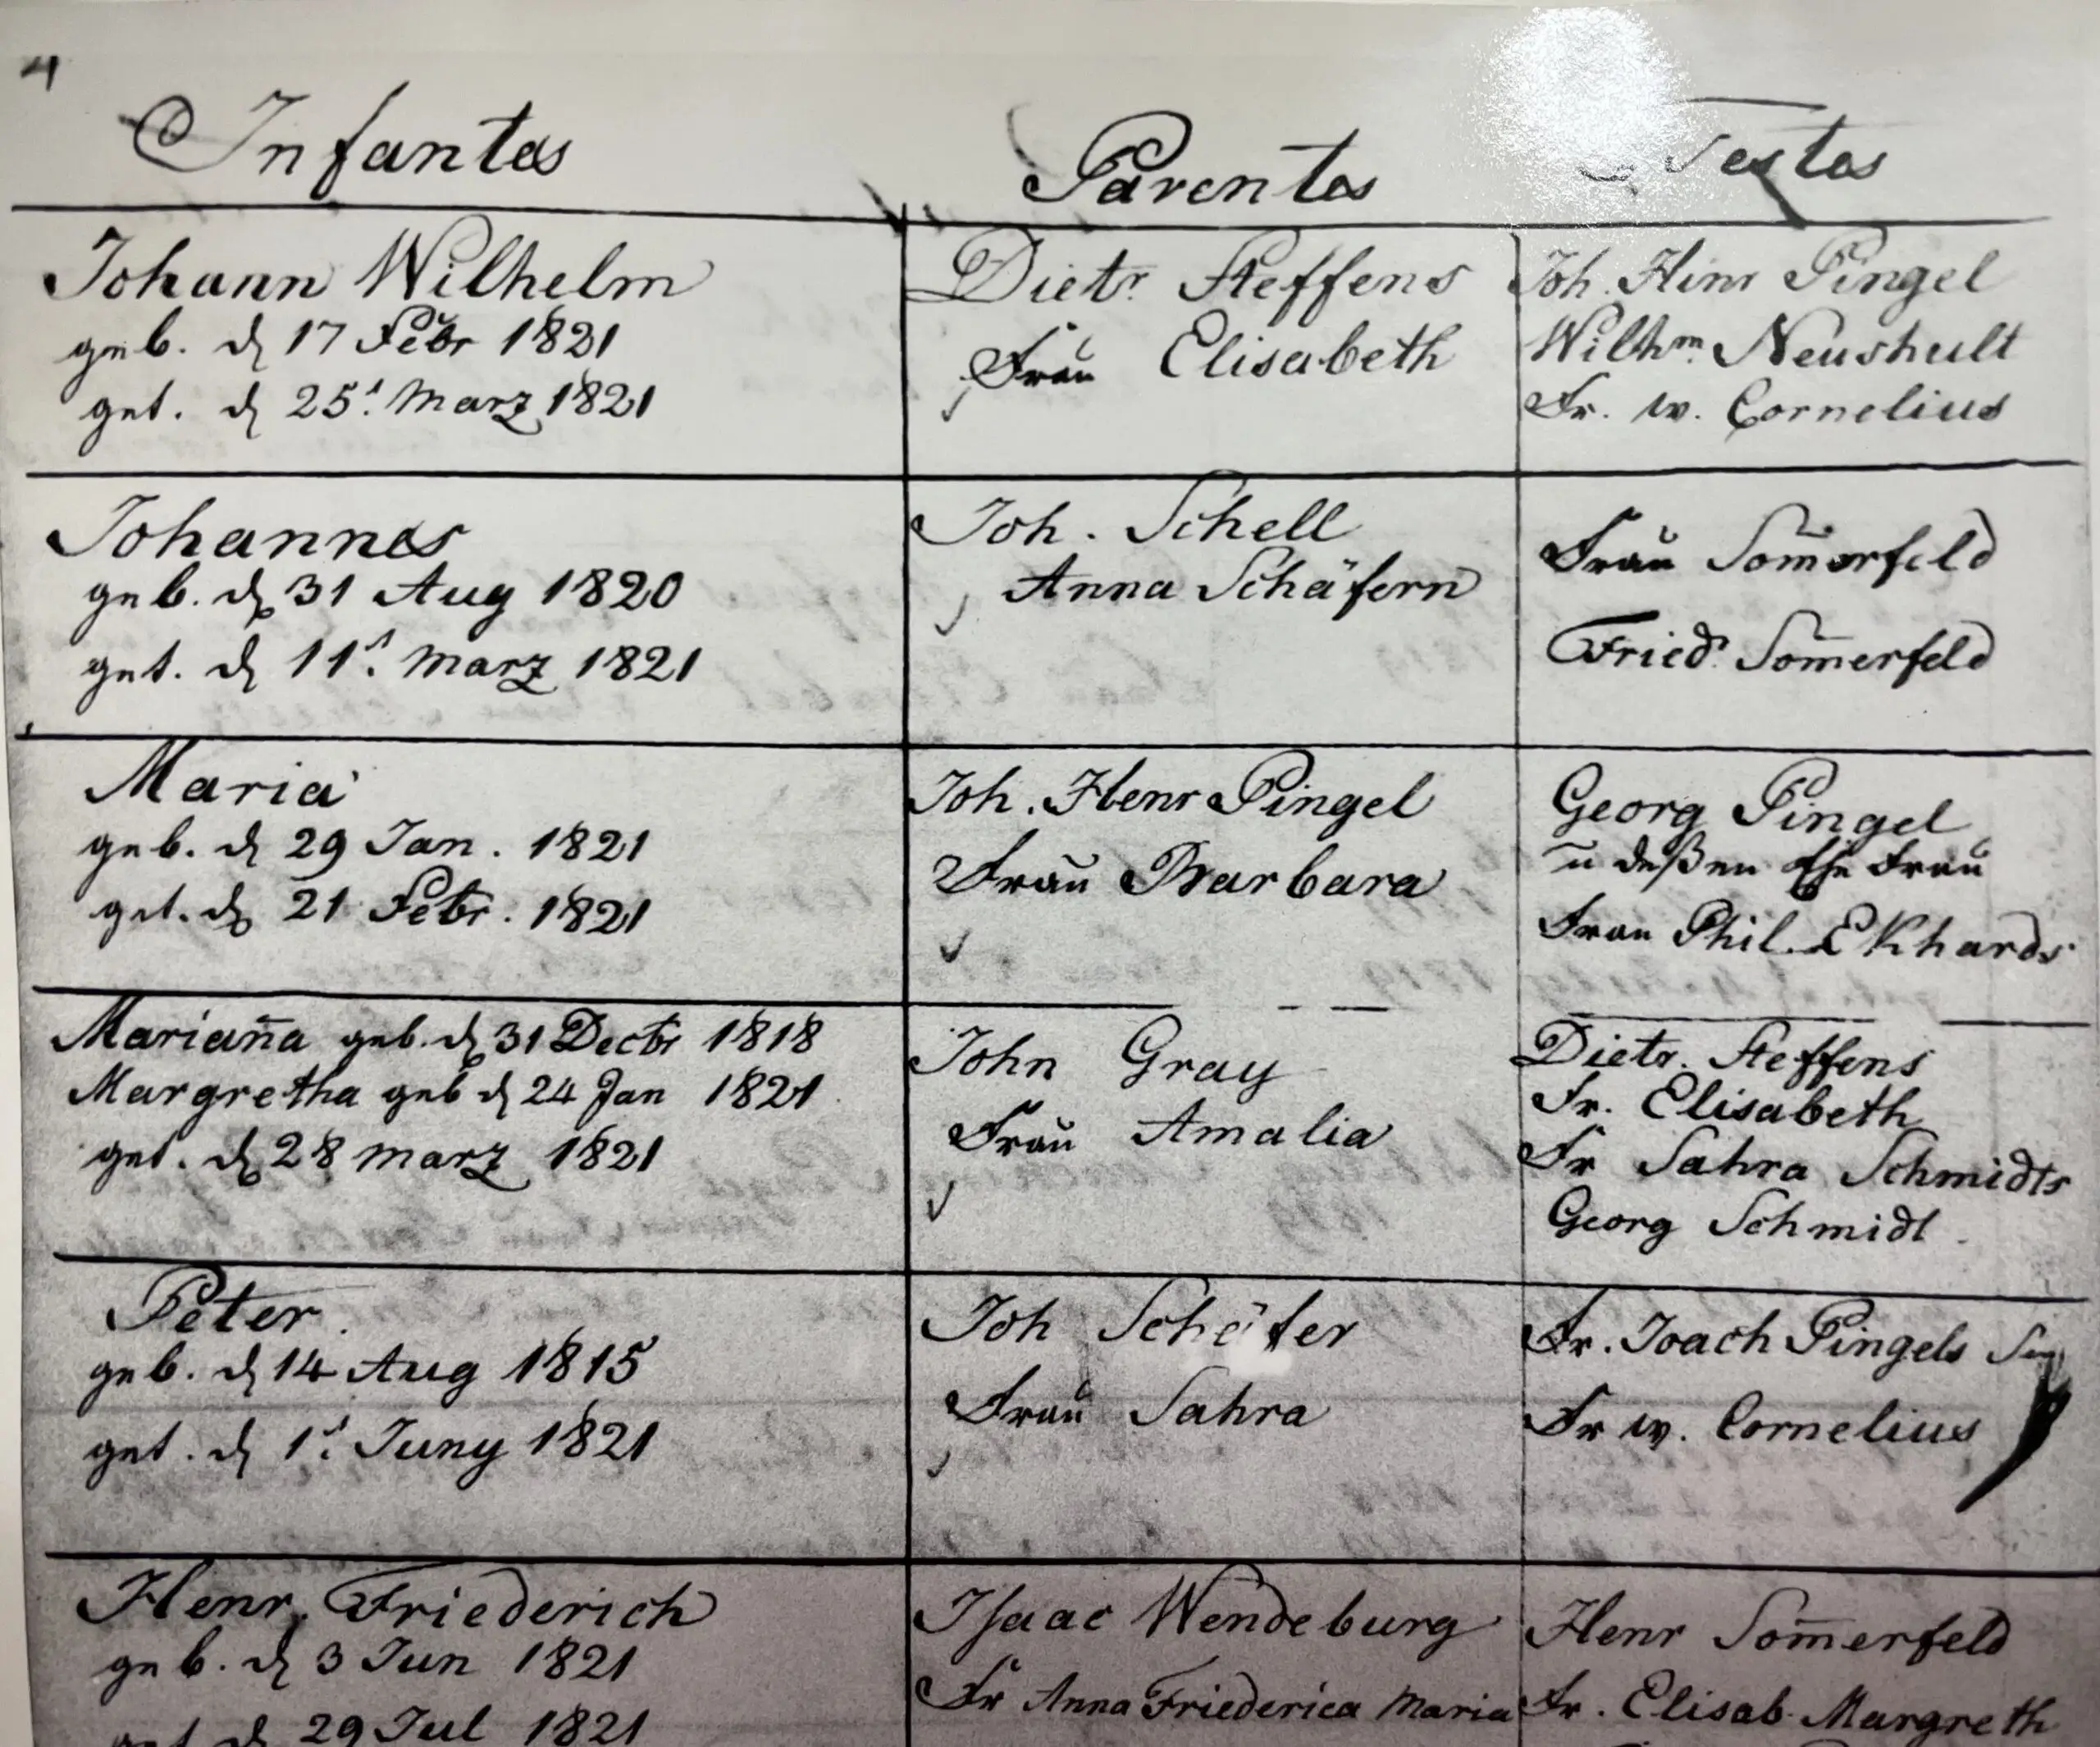 4
Infantes
Parentes
Testes
Johann Wilhelm
geb. d 17 Febr 1821
get. d 25t. März 1821
Dietr. Steffens
Frau Elisabeth
Joh. Hinr Pingel
Wilhm. Neushult
Fr. W. Cornelius
Johannes
geb. d 31 Aug 1820
get. d 11t. März 1821
Joh. Schell
Anna Schäfern
Frau Som̄erfeld
Fried. Som̄erfeld
Maria
geb. d 29 Jan. 1821
get. d 21 Febr. 1821
Joh. Henr Pingel
Frau Barbara
Georg Pingel
u deßen Ehe Frau
Frau Phil. Ekhards
Marian̄a geb. d 31 Decbr 1818
Margretha geb d 24 Jan 1821
get. d 28 März 1821
John Gray
Frau Amalia
Dietr. Steffens
Fr. Elisabeth
Fr Sahra Schmidts
Georg Schmidt
Peter
geb. d 14 Aug 1815
get. d 1t. Juny 1821
Joh Schäfer
Frau Sahra
Fr. Joach Pingels
Fr W. Cornelius
Henr. Friederich
geb. d 3 Jun 1821
get d 29 Jul 1821
Isaac Wendeburg
Fr Anna Friederica Maria
Henr Som̄erfeld
Fr. Elisab. Margreth